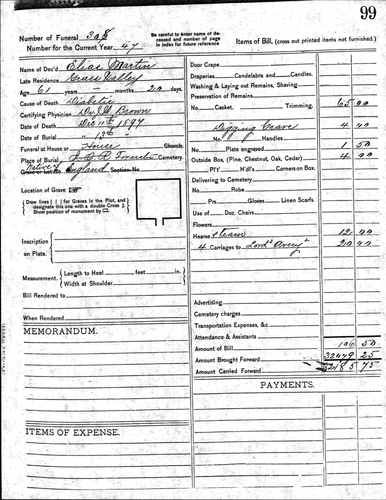 99
Number of Funeral 308
Number for the Current Year 47
Be careful to enter name of deceased and number of page in index for future reference
Items of Bill, (cross out printed items not furnished.)
Name of Dec'd Elias Martin
Late Residence Grass Valley
Age 61 years — months 20 days.
Cause of Death Diabetic
Certifying Physician Dr. Brown
Date of Death Dec 11th 1897
Date of Burial " 13th
Funeral at House or House Church.
Place of Burial Cemetery.
Native of England Section No
Location of Grave
Draw lines [ ] for Graves in the Plot, and designate this one with a double Cross
Show position of monument by
Inscription on Plate.
Measurement. Length to Heel feet in.
Width at Shoulder
Bill Rendered to
When Rendered
MEMORANDUM.
ITEMS OF EXPENSE.
Door Crape
Draperies Candelabra and Candles.
Washing & Laying out Remains, Shaving
Preservation of Remains
No. Casket. Trimming. 65 00
Digging Grave 4 00
No. Handles
No. Plate engraved 1 50
Outside Box, (Pine, Chestnut, Oak, Cedar) 4 00
P.T.Y. H'd's Corners on Box.
Delivering to Cemetery
No. Robe
Prs. Gloves Linen Scarfs.
Use of Doc. Chairs
Flowers
Hearse & team 12 00
4 Carriages to 20 00
Advertiing
Cemetery charges
Transportation Expenses, &c
Attendance & Assistants
Amount of Bill 106 50
Amount Brought Forward 32079 25
Amount Carried Forward 32185 75
PAYMENTS.